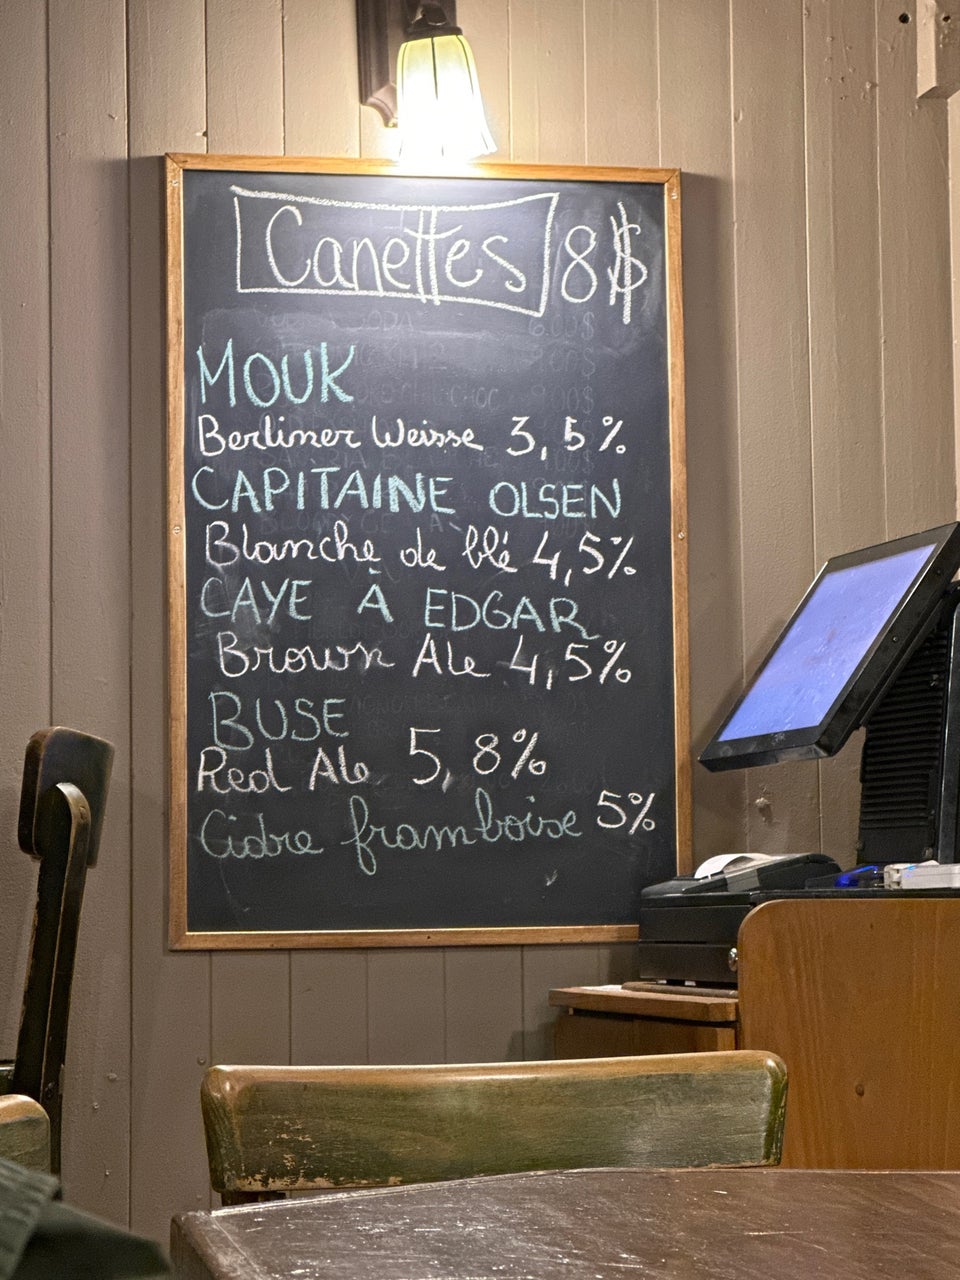 Canettes 8$
MOUK
Berliner Weisse 3,5%
CAPITAINE OLSEN
Blanche de blé 4,5%
CAYE À EDGAR
Brown Ale 4,5%
BUSE
Red Ale 5,8%
Cidre framboise 5%